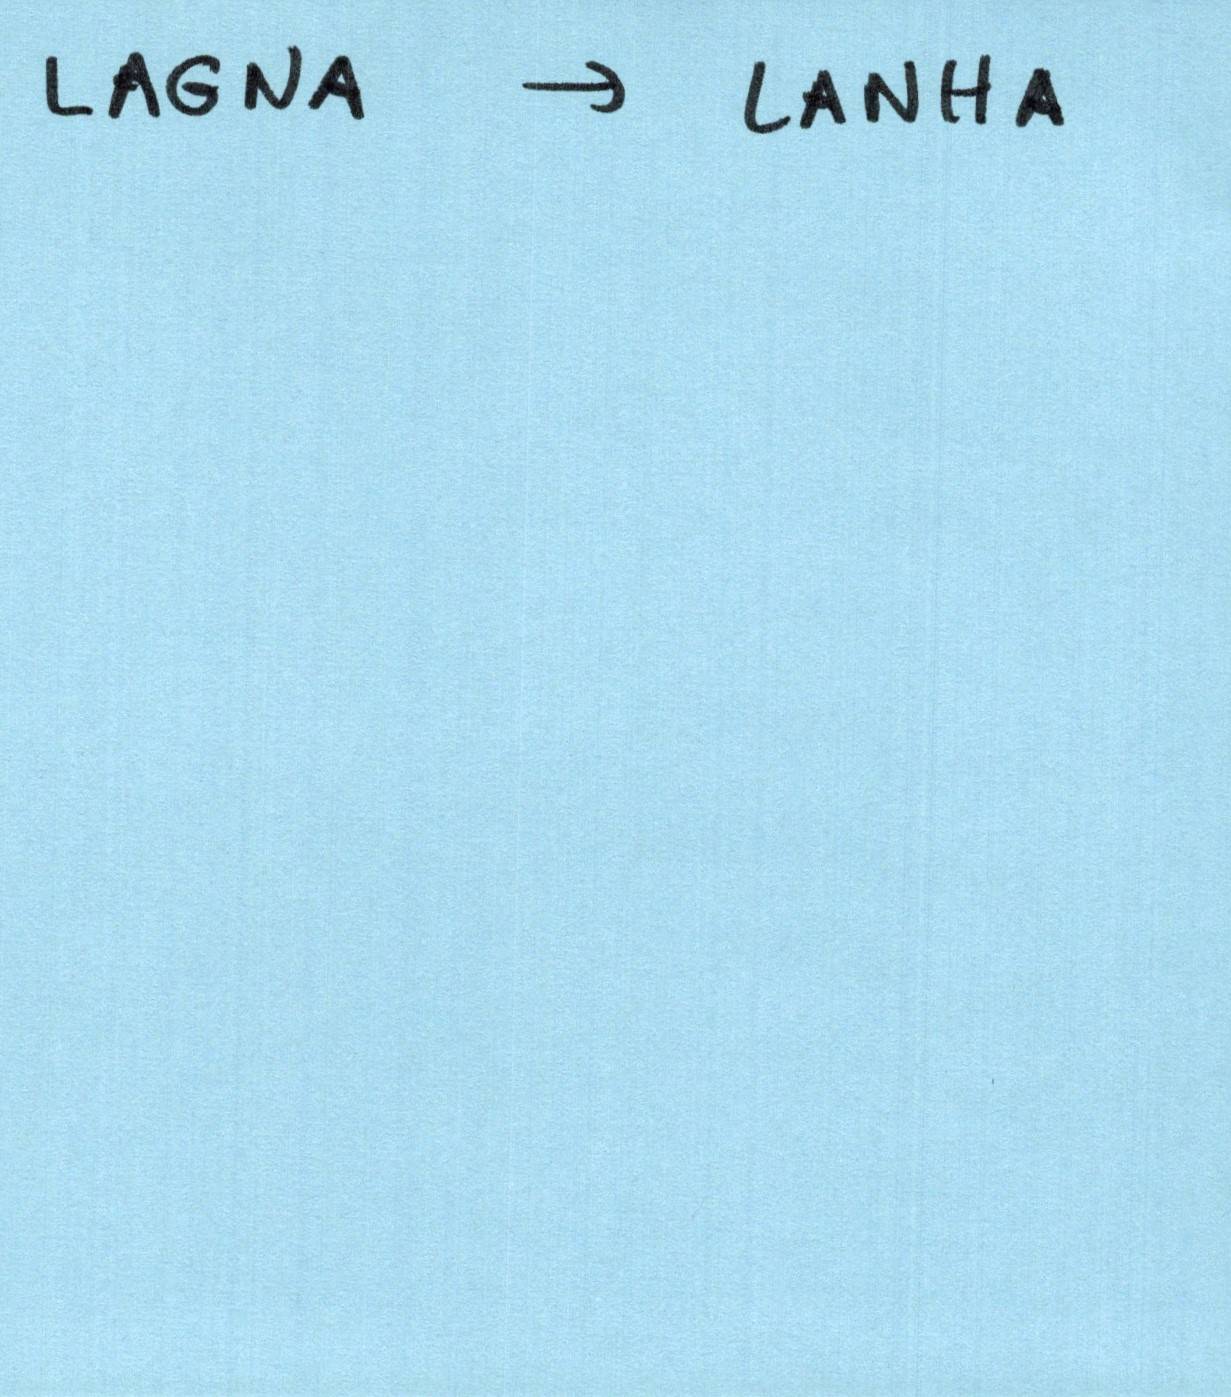 LAGNA → LANHA